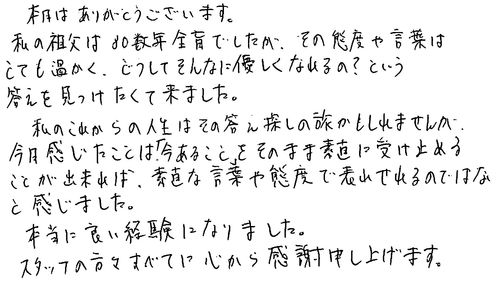 本日はありがとうございます。
私の祖父は80数年全盲でしたが、その態度や言葉は
とても温かく、どうしてそんなに優しくなれるの?という
答えを見つけたくて来ました。
私のこれからの人生はその答え探しの旅かもしれませんが、
今日感じたことは「今あること」をそのまま素直に受け止める
ことが出来れば、素直な言葉や態度で表わせれるのではな
と感じました。
本当に良い経験になりました。
スタッフの方々すべてに心から感謝申し上げます。